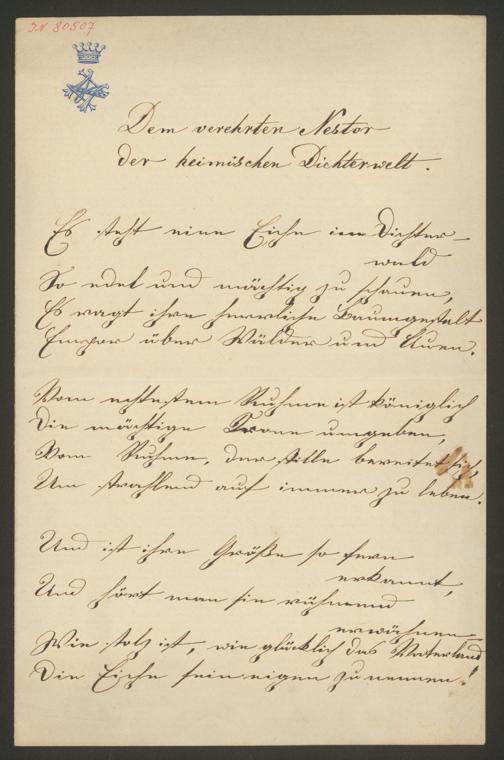 IN 80507
Dem verehrten Nestor
der heimischen Dichterwelt.
Es steht eine Eiche im Dichter-
wald
So edel und mächtig zu schauen,
Es ragt ihre herrliche Baumgestalt
Empor über Wälder und Auen.
Vom echtestem Ruhme ist königlich
Die mächtige Krone umgeben,
Vom Ruhme, der stille bereitet sich,
Um strahlend auf immer zu leben.
Und ist ihre Größe so fern
erkannt,
Und hört man sie rühmend
erwähnen
Wie stolz ist, wie glücklich das Vaterland
Die Eiche sein eigen zu nennen!